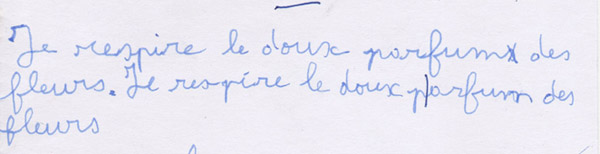 Je respire le doux parfum des
fleurs. Je respire le doux parfum des
fleurs